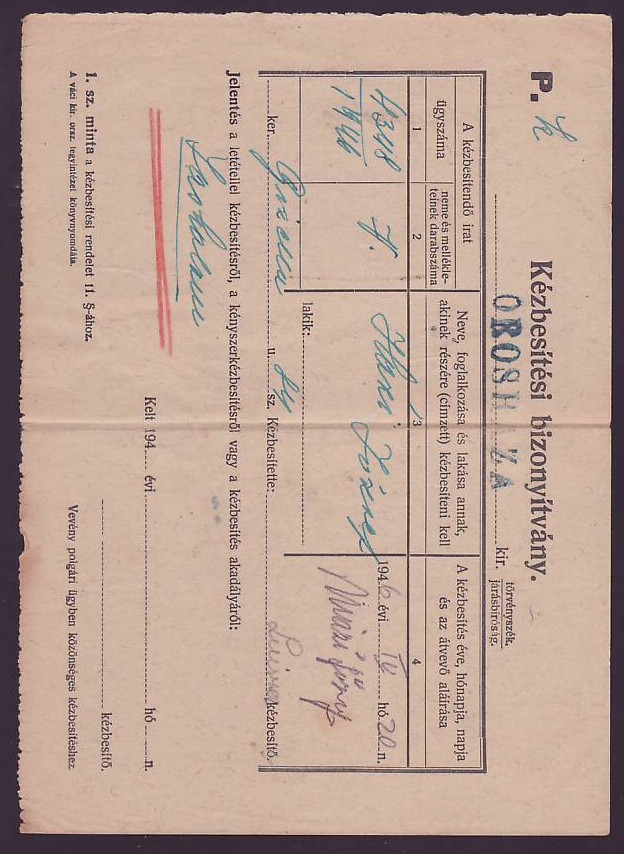 P. k
Kézbesítési bizonyítvány.
OROSHÁZA kir. törvényszék.
járásbíróság.
A kézbesítendő irat
ügyszáma
neme és mellékle-
teinek darabszáma
Neve, foglalkozása és lakása annak,
akinek részére (címzett) kézbesíteni kell
A kézbesítés éve, hónapja, napja
és az átvevő aláírása
1
2
3
4
4348
1946
József
1946 évi IV hó 20 n.
lakik:
ker. u. 84 sz. Kézbesítette: kézbesítő.
Jelentés a letétellel kézbesítésről, a kényszerkézbesítésről vagy a kézbesítés akadályáról:
Kelt 194 évi hó n.
kézbesítő.
1. sz. minta a kézbesítési rendelet 11. §-ához.
A váci kir. orsz. fegyintézet könyvnyomdája.
Vevény polgári ügyben közönséges kézbesítéshez.